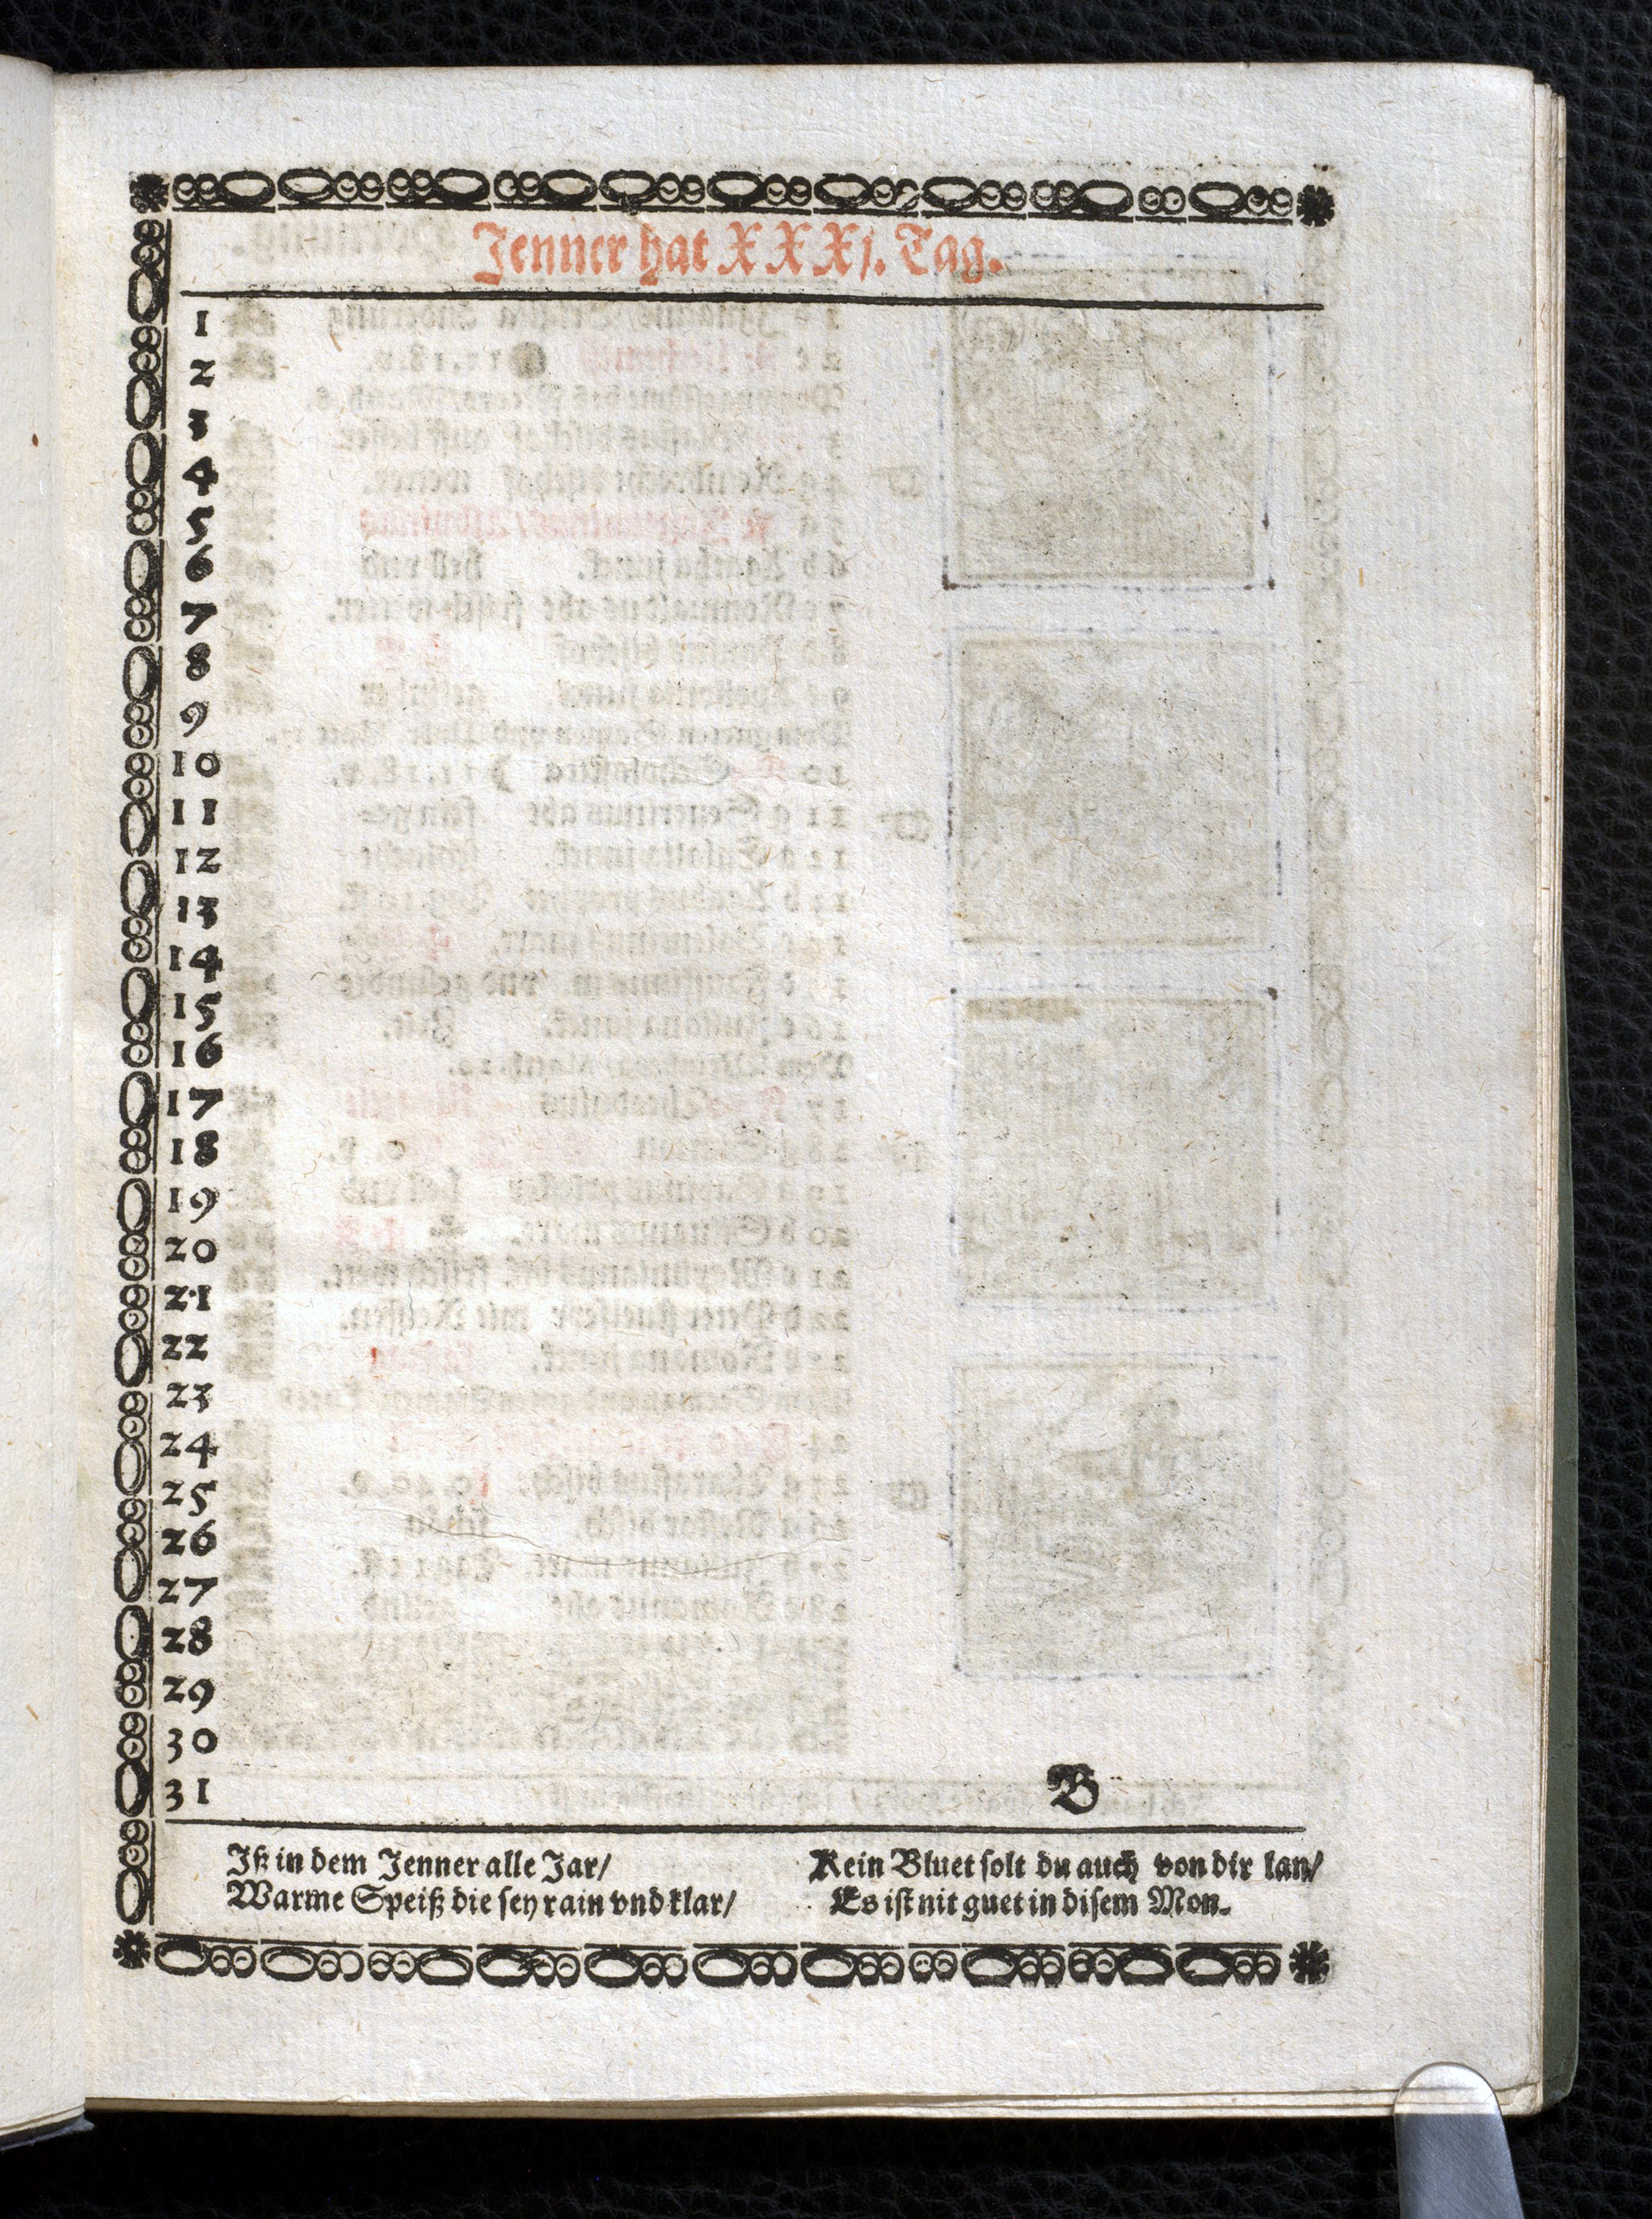 Jenner hat XXXj. Tag.
1
2
3
4
5
6
7
8
9
10
11
12
13
14
15
16
17
18
19
20
21
22
23
24
25
26
27
28
29
30
31
B
Iß in dem Jenner alle Jar/
Warme Speiß die sey rain vnd klar/
Kein Bluet solt du auch von dir lan/
Es ist nit guet in disem Mon.